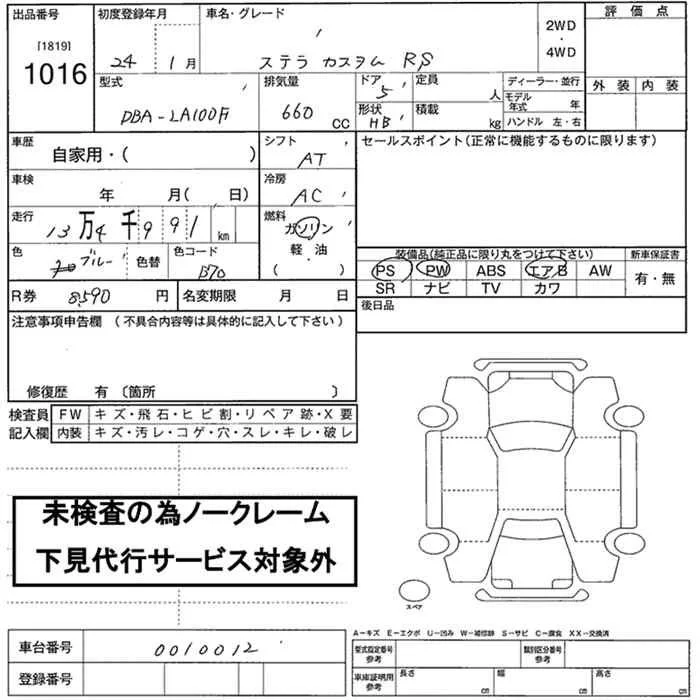 出品番号 [1819] 1016
初度登録年月 24 1月
車名・グレード ステラ カスタム RS
2WD・4WD
評価点
外装 内装
型式 DBA-LA100F
排気量 660 CC
ドア 5
形状 HB
定員 人
積載 kg
ディーラー・並行
モデル年式 年
ハンドル 左・右
車歴 自家用・( )
シフト AT
セールスポイント(正常に機能するものに限ります)
車検 年 月( 日)
冷房 AC
走行 13万4千991 km
燃料 ガソリン 軽・油 ・ ( )
色 ブルー 色替
色コード B70
装備品(純正品に限り丸をつけて下さい)
新車保証書
PS PW ABS エアB AW
有・無
SR ナビ TV カワ
R券 8,590 円
名変期限 月 日
後日品
注意事項申告欄 (不具合内容等は具体的に記入して下さい)
修復歴 有 〔箇所 〕
検査員記入欄
FW キズ・飛石・ヒビ割・リペア跡・X要
内装 キズ・汚レ・コゲ・穴・スレ・キレ・破レ
未検査の為ノークレーム
下見代行サービス対象外
スペア
A-キズ E-エクボ U-凹み W-補修跡 S-サビ C-腐食 XX-交換済
車台番号 0010012
登録番号
型式指定番号 参考
類別区分番号 参考
車庫証明用 参考
長さ cm 幅 cm 高さ cm